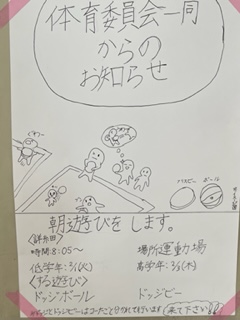 体育委員会一同
からの
お知らせ
ボール
朝遊びをします。
<詳細>
時間:8:05〜
場所運動場
低学年:3/1(火)
高学年:3/3(木)
<する遊び>
ドッジボール
ドッジビー
来て下さい!!